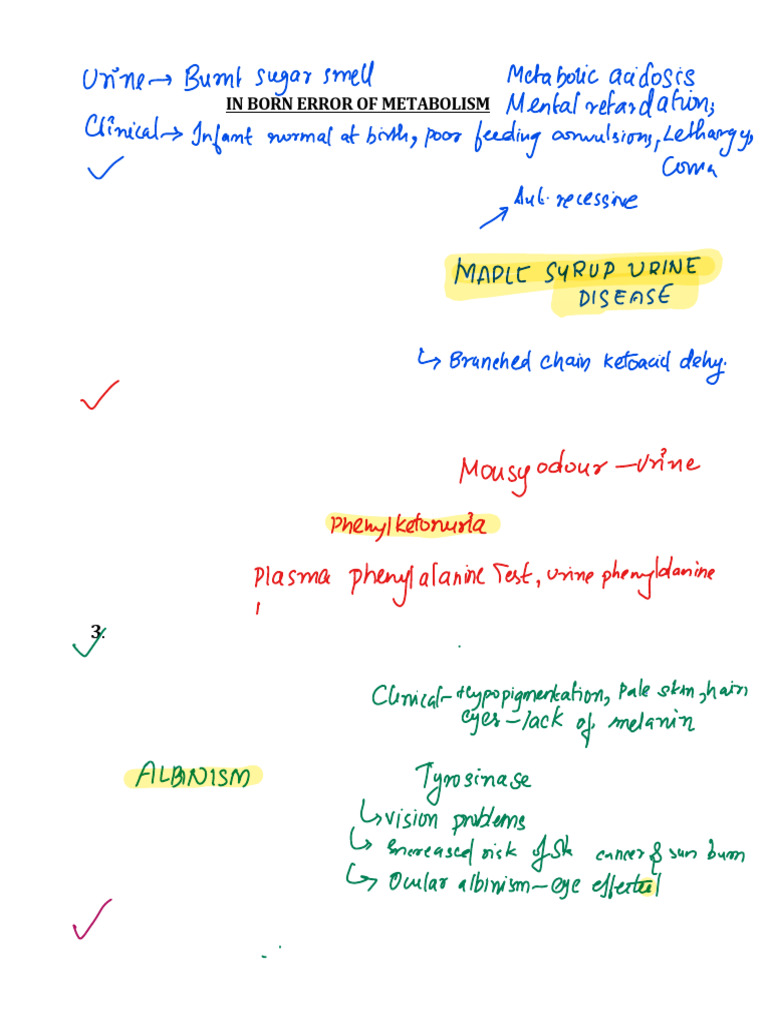 Urine → Burnt sugar smell
Metabolic acidosis
IN BORN ERROR OF METABOLISM
Mental retardation,
Clinical → Infant normal at birth, poor feeding convulsions, Lethargy,
Coma
Aut. recessive
MAPLE SYRUP URINE
DISEASE
↳ Branched chain ketoacid dehy.
Mousy odour - urine
Phenylketonuria
Plasma phenylalanine Test, urine phenylalanine
3.
Clinical - Hypopigmentation, Pale skin, hair
eyes - lack of melanin
ALBINISM
Tyrosinase
↳ vision problems
↳ Increased risk of Sk cancer & sun burn
↳ Ocular albinism - eye